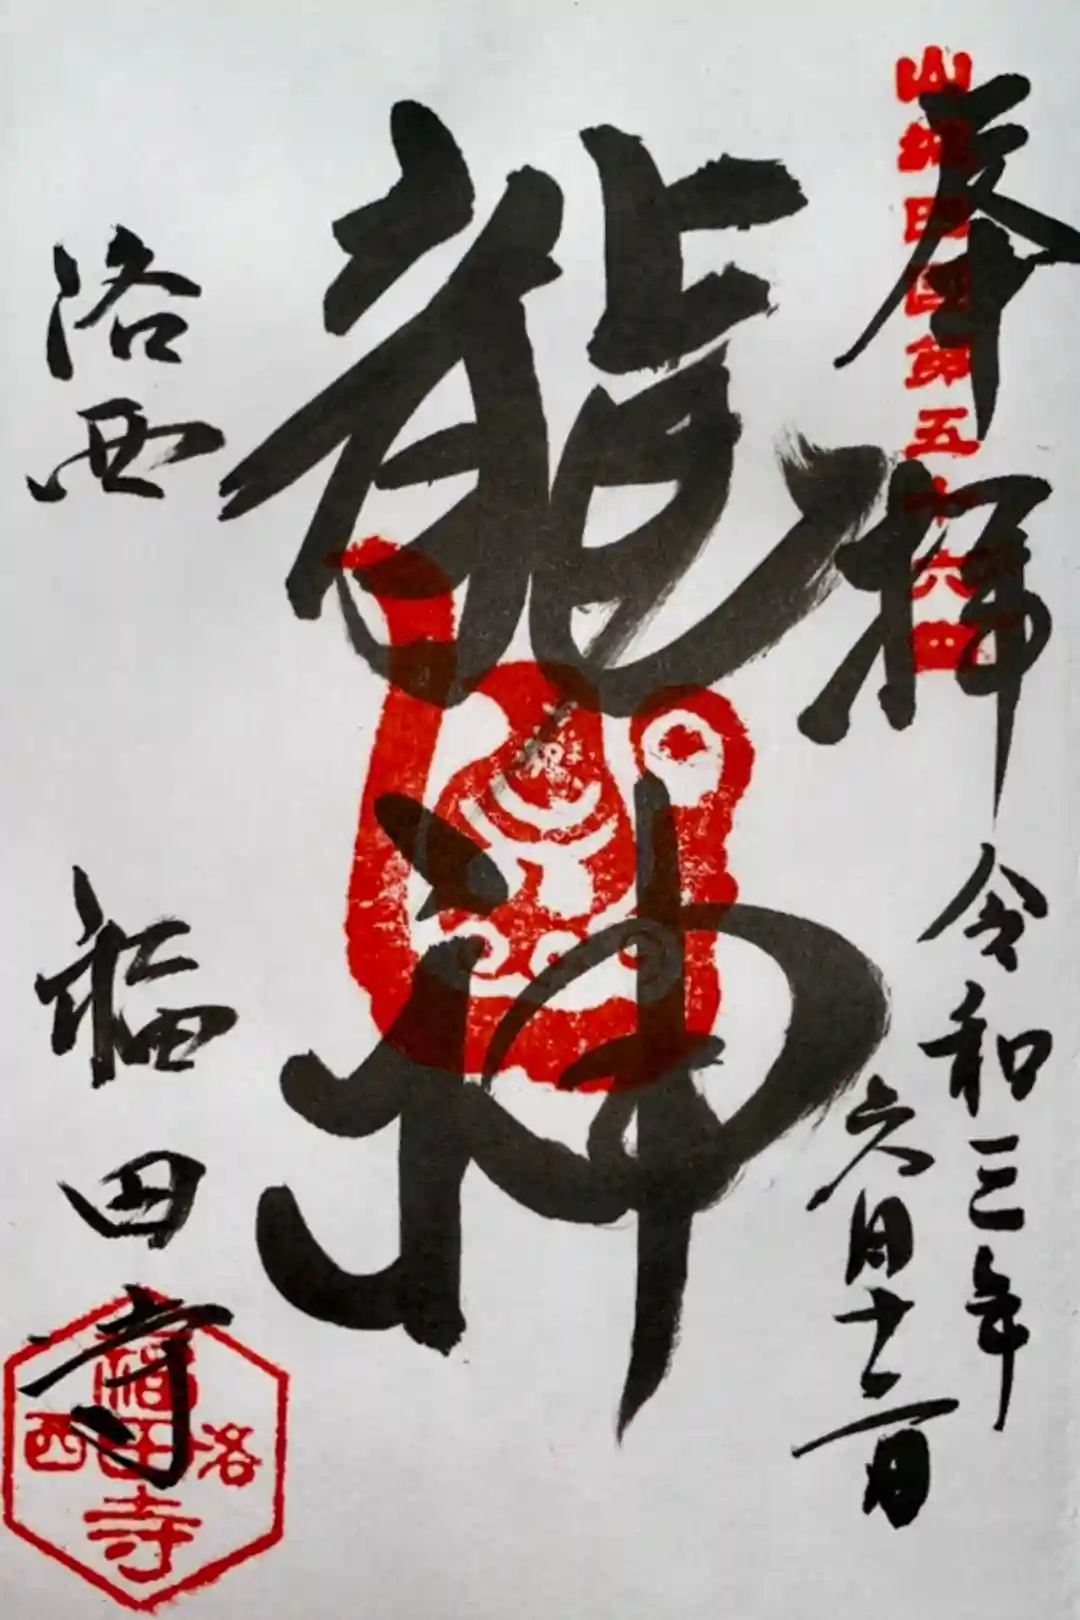 奉拝
山城四国第五十六番
令和三年
六月十二日
龍神
洛西 福田寺
洛西
福田寺